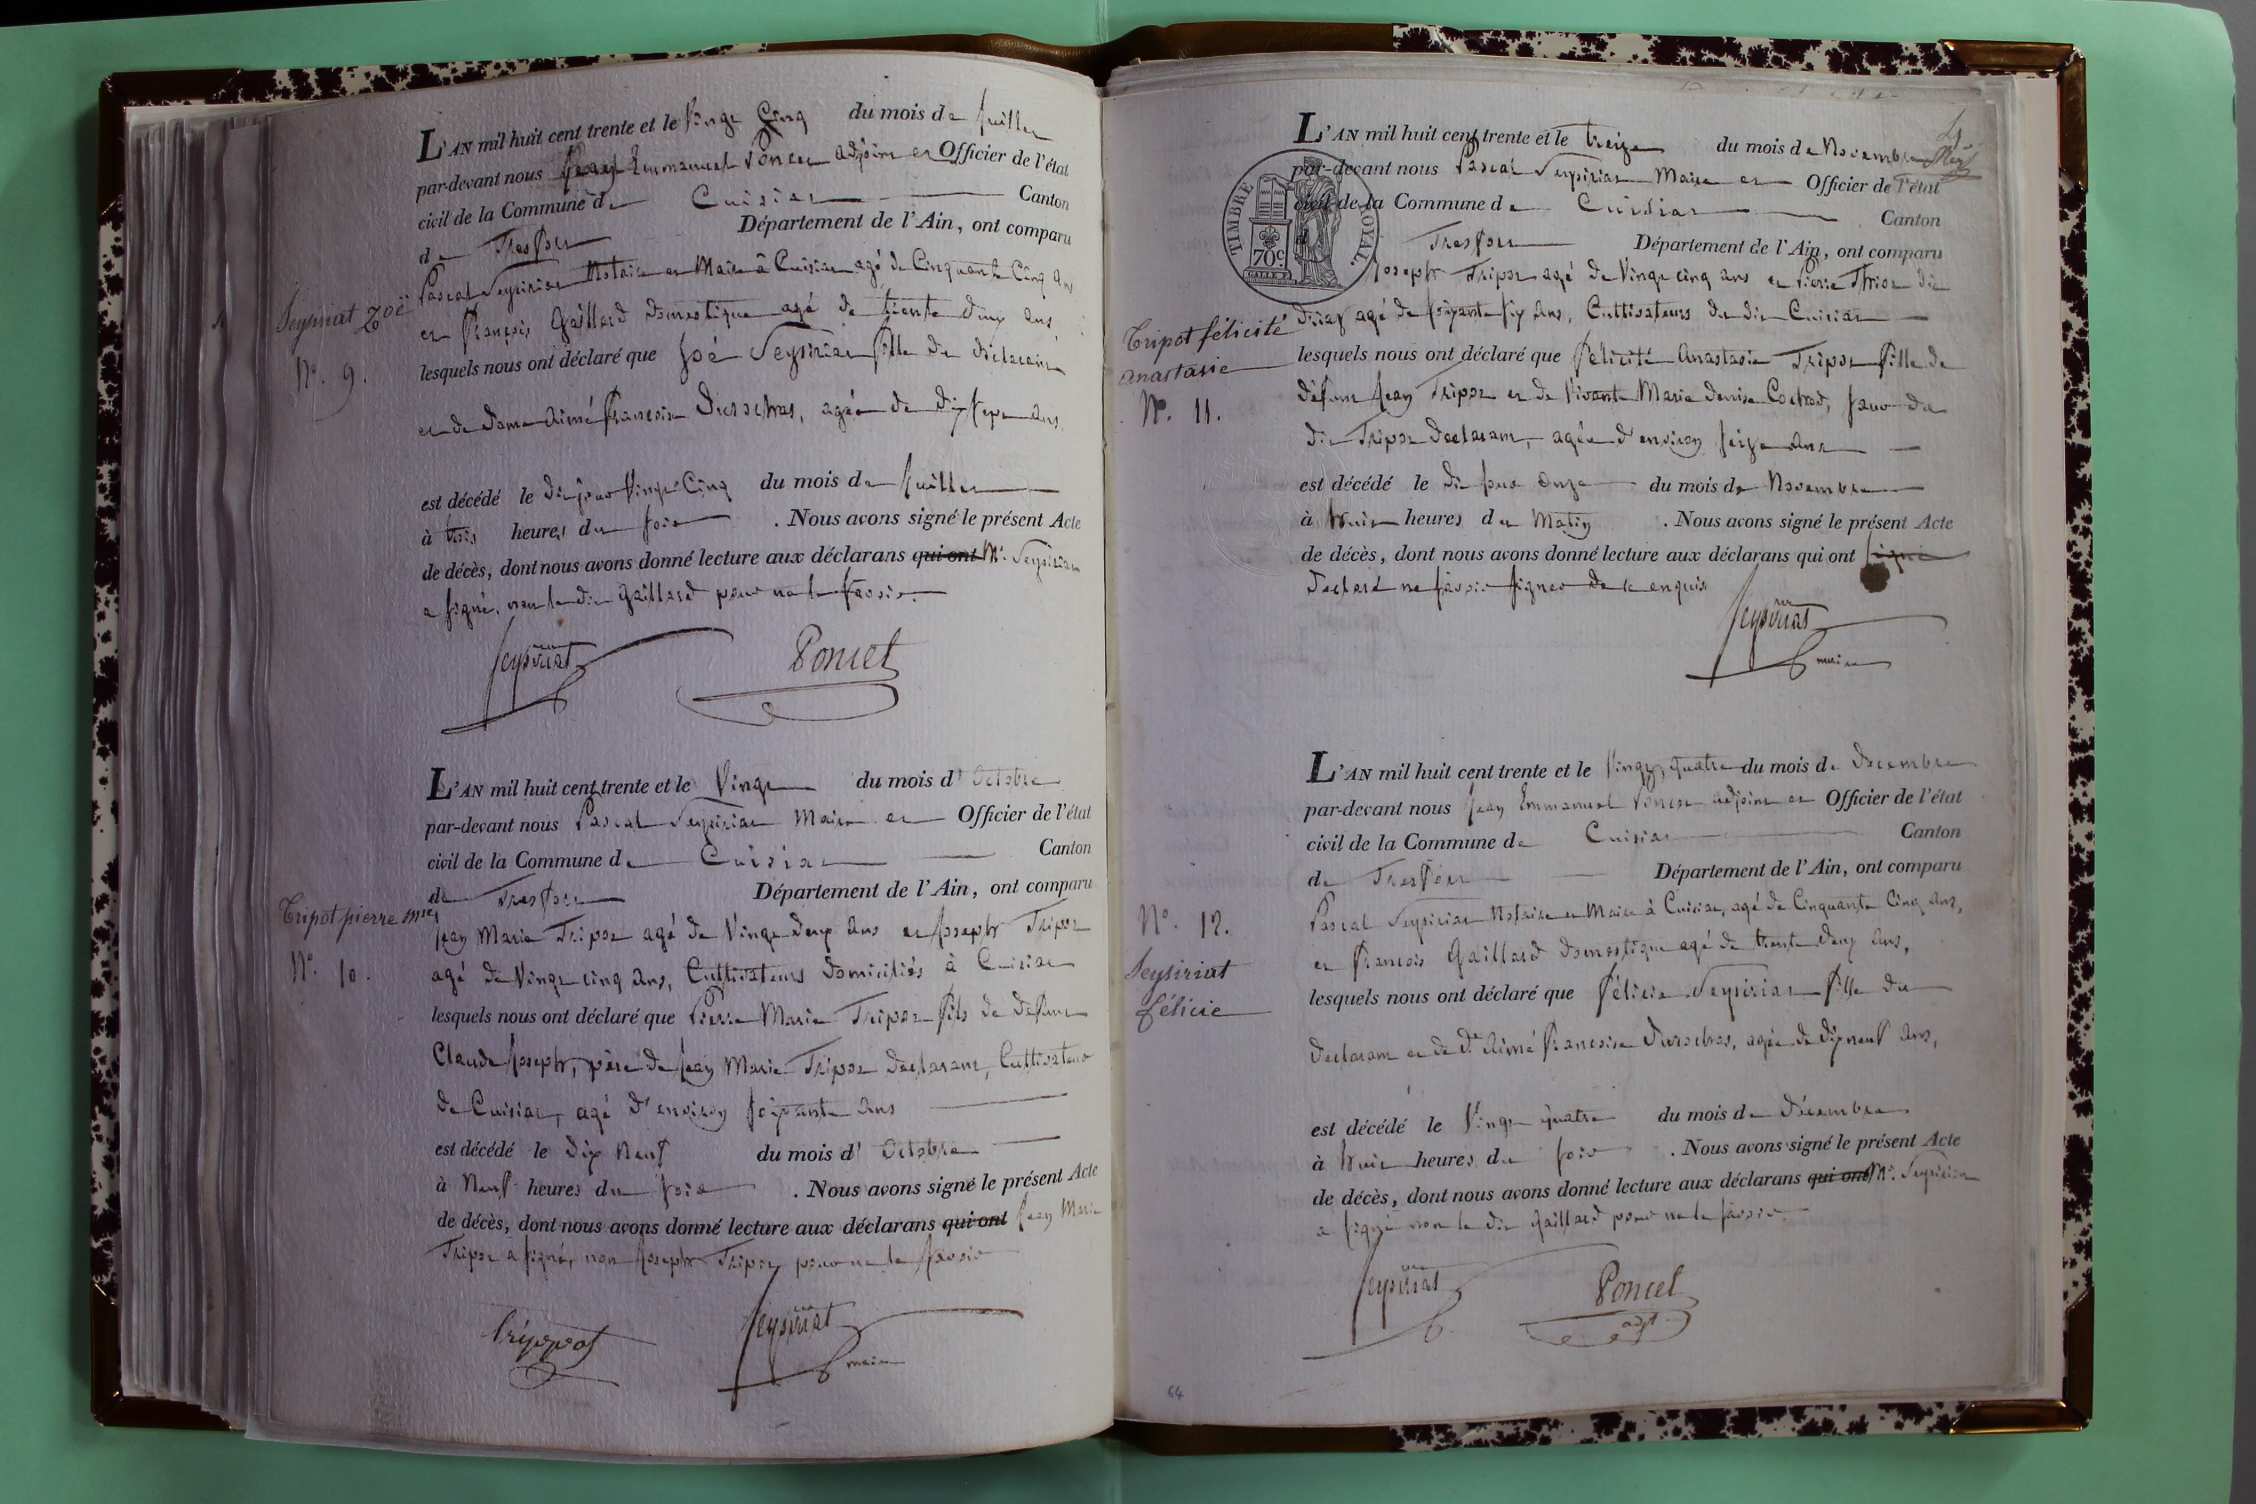 L'AN mil huit cent trente et le Vingt Cinq du mois de Juillet
par-devant nous Jean Emmanuel Poncet adjoint et Officier de l'état
civil de la Commune de Cuisiat Canton
de Treffort Département de l'Ain, ont comparu
Pascal Seysiriat Notaire et Maire à Cuisiat agé de Cinquante Cinq ans
et François Gaillard domestique agé de trente deux ans
Seysiriat Zoë
N°. 9.
lesquels nous ont déclaré que Zoé Seysiriat fille du déclarant
et de dame Aimé Francoise Durochas, agée de dix sept ans,
est décédé le dit jour Vingt Cinq du mois de Juillet
à trois heures du soir . Nous avons signé le présent Acte
de décès, dont nous avons donné lecture aux déclarans qui ont Mr. Seysiriat
a signé, non le dit Gaillard pour ne le savoir.
Seysiriat Poncet
L'AN mil huit cent trente et le Vingt du mois d' Octobre
par-devant nous Pascal Seysiriat Maire et Officier de l'état
civil de la Commune de Cuisiat Canton
de Treffort Département de l'Ain, ont comparu
Tripot pierre Mie
N°. 10.
Jean Marie Tripoz agé de Vingt deux ans et Joseph Tripoz
agé de Vingt cinq ans, Cultivateurs domiciliés à Cuisiat
lesquels nous ont déclaré que Pierre Marie Tripoz fils de défunt
Claude Joseph, père de Jean Marie Tripoz déclarant, Cultivateur
de Cuisiat, agé d'environ soixante ans
est décédé le dix neuf du mois d' Octobre
à Neuf heures du soir . Nous avons signé le présent Acte
de décès, dont nous avons donné lecture aux déclarans qui ont Jean Marie
Tripoz a signé, non Joseph Tripoz pour ne le savoir
Seysiriat
maire
L'AN mil huit cent trente et le treize du mois de Novembre
par-devant nous Pascal Seysiriat Maire et Officier de l'état
civil de la Commune de Cuisiat Canton
de Treffort Département de l'Ain, ont comparu
TIMBRE ROYAL.
70c.
Joseph Tripoz agé de Vingt cinq ans et Pierre dit
agé de soixante six ans, Cultivateurs du dit Cuisiat
Tripot félicité
anastasie
N°. 11.
lesquels nous ont déclaré que félicité Anastasie Tripoz fille de
défunt Jean Tripoz et de Vivante Marie Denise, sœur du
dit Tripoz déclarant, agée d'environ seize ans
est décédé le dit jour onze du mois de Novembre
à huit heures du Matin . Nous avons signé le présent Acte
de décès, dont nous avons donné lecture aux déclarans qui ont signé
déclaré ne savoir signer de ce enquis
Seysiriat
maire
L'AN mil huit cent trente et le Vingt quatre du mois de décembre
par-devant nous Jean Emmanuel Poncet adjoint et Officier de l'état
civil de la Commune de Cuisiat Canton
de Treffort Département de l'Ain, ont comparu
Pascal Seysiriat Notaire et Maire à Cuisiat, agé de Cinquante Cinq ans,
et François Gaillard domestique agé de trente deux ans,
N°. 12.
Seysiriat
félicie
lesquels nous ont déclaré que félicie Seysiriat fille du
declarant et de de Aimé Francoise Durochas, agée de dix neuf ans,
est décédé le Vingt quatre du mois de décembre
à huit heures du soir . Nous avons signé le présent Acte
de décès, dont nous avons donné lecture aux déclarans qui ont Mr. Seysiriat
a signé non le dit Gaillard pour ne le savoir.
Seysiriat Poncet
adjt
64